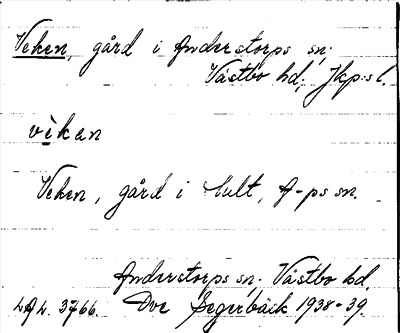 Veken, gård i Anderstorps sn.
Västbo hd. Jkp:s l.
vekan
Veken, gård i Hult, A-ps sn.
Anderstorps sn. Västbo hd.
LAL. 3766. Ove Segerbäck 1938-39.